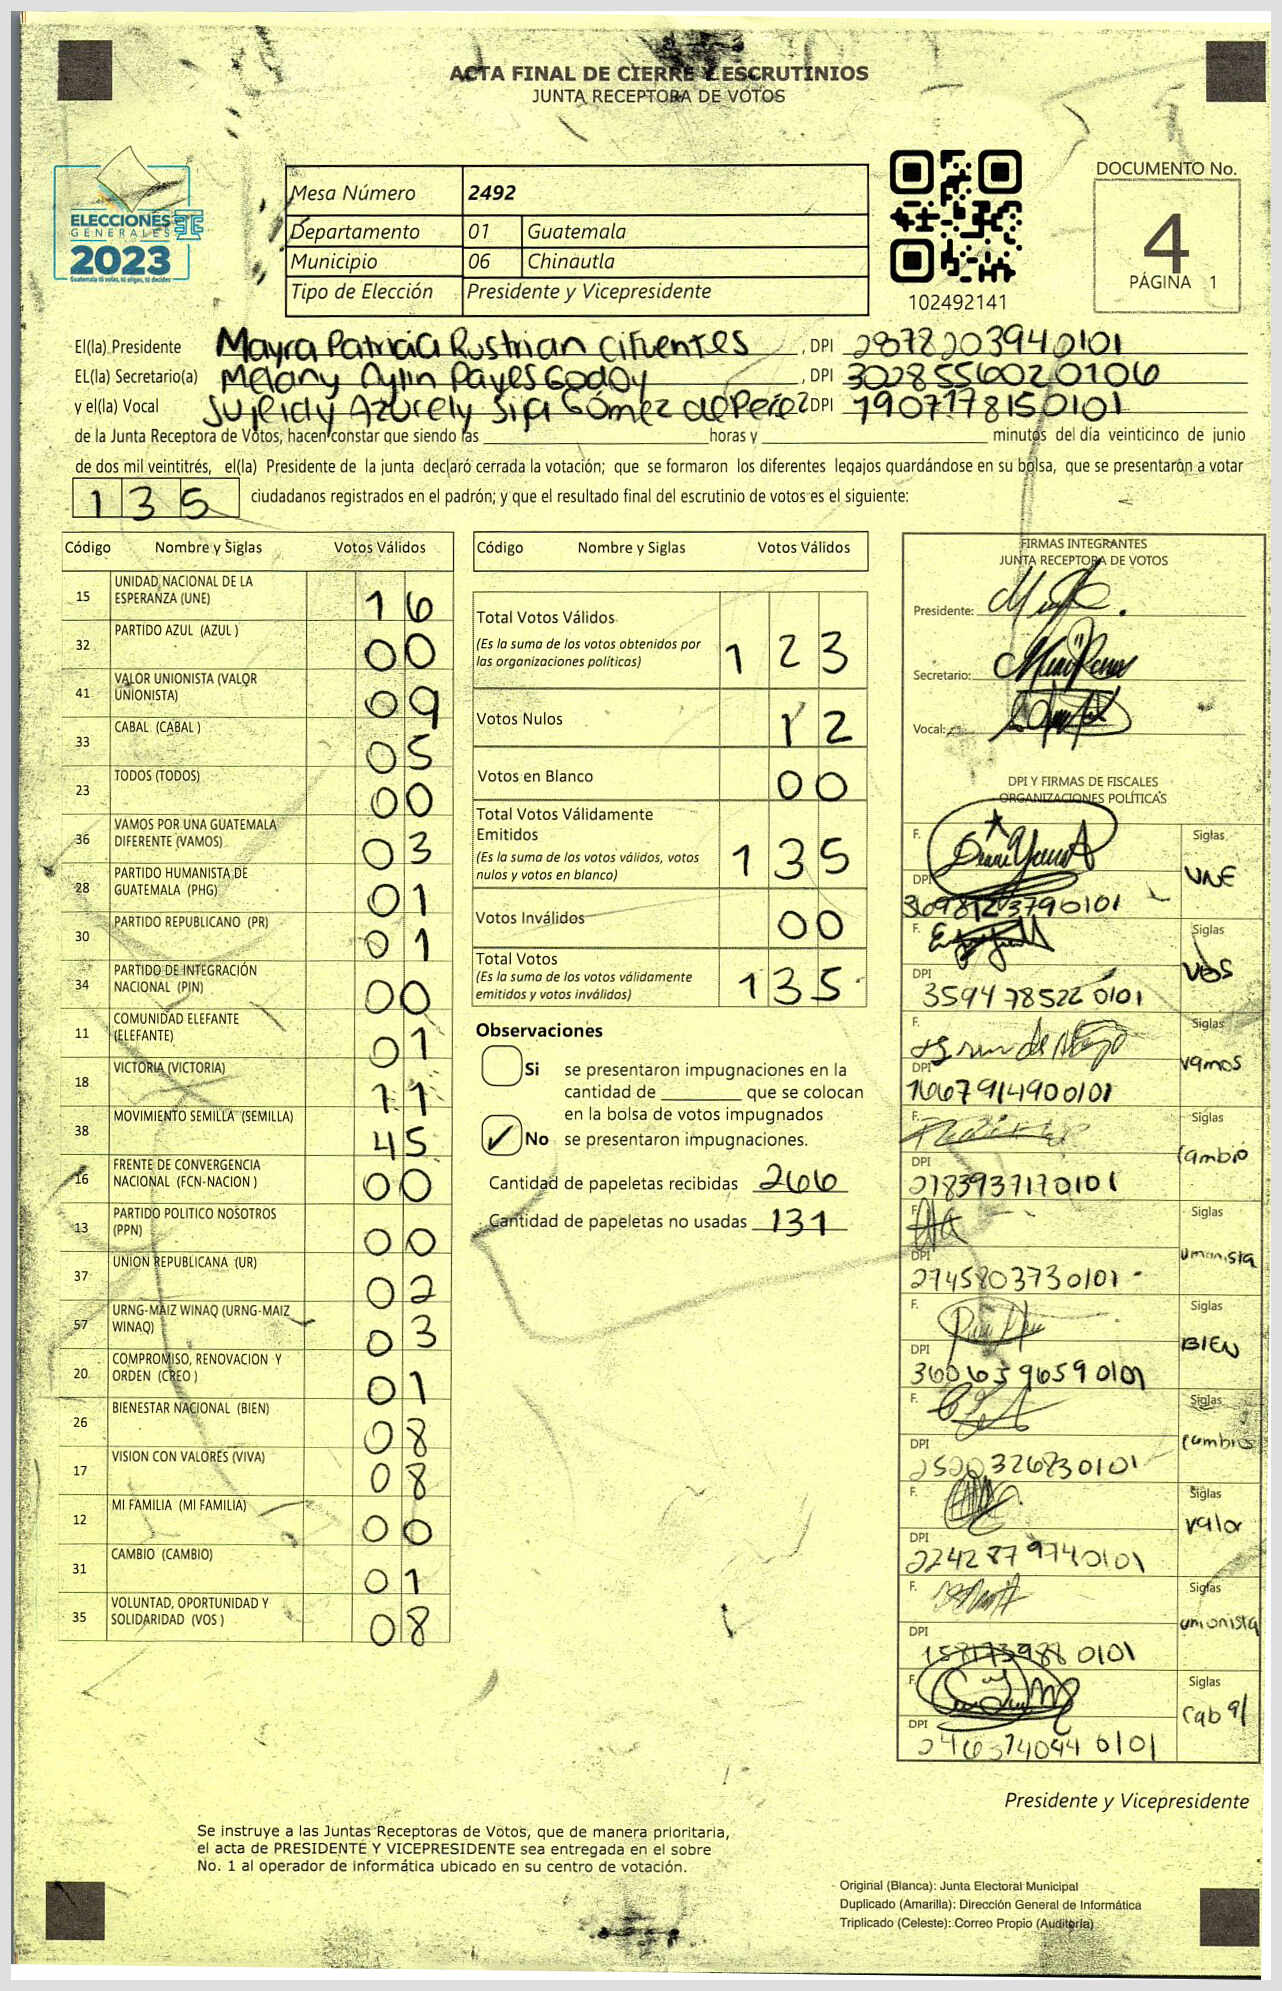 ACTA FINAL DE CIERRE Y ESCRUTINIOS
JUNTA RECEPTORA DE VOTOS
ELECCIONES
GENERALES
2023
Guatemala tú votas, tú eliges, tú decides
Mesa Número 2492
Departamento 01 Guatemala
Municipio 06 Chinautla
Tipo de Elección Presidente y Vicepresidente
102492141
DOCUMENTO No.
4
PÁGINA 1
El(la) Presidente Mayra Patricia Rustrian Cifuentes , DPI 2878203940101
EL(la) Secretario(a) Melany Aylin Payes Godoy , DPI 3028556020106
y el(la) Vocal Azucely Sipa Gómez de Perez DPI 1907178150101
de la Junta Receptora de Votos, hacen constar que siendo las horas y minutos del día veinticinco de junio
de dos mil veintitrés, el(la) Presidente de la junta declaró cerrada la votación; que se formaron los diferentes legajos guardándose en su bolsa, que se presentarón a votar
135 ciudadanos registrados en el padrón; y que el resultado final del escrutinio de votos es el siguiente:
Código Nombre y Siglas Votos Válidos
15 UNIDAD NACIONAL DE LA
ESPERANZA (UNE) 16
32 PARTIDO AZUL (AZUL ) 00
41 VALOR UNIONISTA (VALOR
UNIONISTA) 09
33 CABAL (CABAL ) 05
23 TODOS (TODOS) 00
36 VAMOS POR UNA GUATEMALA
DIFERENTE (VAMOS) 03
28 PARTIDO HUMANISTA DE
GUATEMALA (PHG) 01
30 PARTIDO REPUBLICANO (PR) 01
34 PARTIDO DE INTEGRACIÓN
NACIONAL (PIN) 00
11 COMUNIDAD ELEFANTE
(ELEFANTE) 01
18 VICTORIA (VICTORIA) 11
38 MOVIMIENTO SEMILLA (SEMILLA) 45
16 FRENTE DE CONVERGENCIA
NACIONAL (FCN-NACION ) 00
13 PARTIDO POLITICO NOSOTROS
(PPN) 00
37 UNION REPUBLICANA (UR) 02
57 URNG-MAIZ WINAQ (URNG-MAIZ
WINAQ) 03
20 COMPROMISO, RENOVACION Y
ORDEN (CREO ) 01
26 BIENESTAR NACIONAL (BIEN) 08
17 VISION CON VALORES (VIVA) 08
12 MI FAMILIA (MI FAMILIA) 00
31 CAMBIO (CAMBIO) 01
35 VOLUNTAD, OPORTUNIDAD Y
SOLIDARIDAD (VOS ) 08
Código Nombre y Siglas Votos Válidos
Total Votos Válidos
(Es la suma de los votos obtenidos por
las organizaciones políticas) 123
Votos Nulos 12
Votos en Blanco 00
Total Votos Válidamente
Emitidos
(Es la suma de los votos válidos, votos
nulos y votos en blanco) 135
Votos Inválidos 00
Total Votos
(Es la suma de los votos válidamente
emitidos y votos inválidos) 135
Observaciones
Si se presentaron impugnaciones en la
cantidad de que se colocan
en la bolsa de votos impugnados
✓ No se presentaron impugnaciones.
Cantidad de papeletas recibidas 266
Cantidad de papeletas no usadas 131
FIRMAS INTEGRANTES
JUNTA RECEPTORA DE VOTOS
Presidente:
Secretario:
Vocal:
DPI Y FIRMAS DE FISCALES
ORGANIZACIONES POLÍTICAS
F. Siglas
UNE
DPI
F. Siglas
VOS
DPI
3594 78522 0101
F. Siglas
vamos
DPI
1667914900101
F. Siglas
Cambio
DPI
2783937170101
F. Siglas
umanista
DPI
2745803730101
F. Siglas
BIEN
DPI
3606359659 0101
F. Siglas
cambio
DPI
2520326830101
F. Siglas
valor
DPI
2242879740101
F. Siglas
umonista
DPI
158173988 0101
F. Siglas
Cabal
DPI
Presidente y Vicepresidente
Se instruye a las Juntas Receptoras de Votos, que de manera prioritaria,
el acta de PRESIDENTE Y VICEPRESIDENTE sea entregada en el sobre
No. 1 al operador de informática ubicado en su centro de votación.
Original (Blanca): Junta Electoral Municipal
Duplicado (Amarilla): Dirección General de Informática
Triplicado (Celeste): Correo Propio (Auditoria)